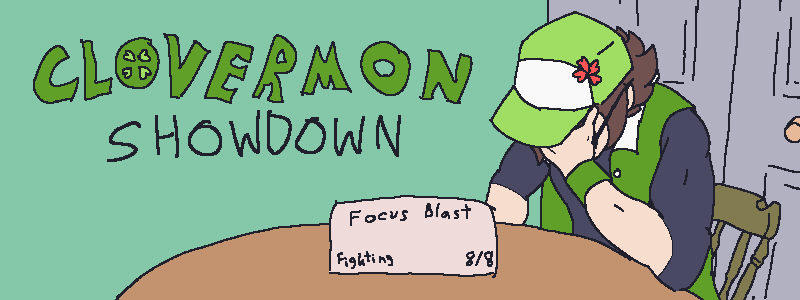 CLOVERMON
SHOWDOWN
Focus Blast
Fighting 8/8